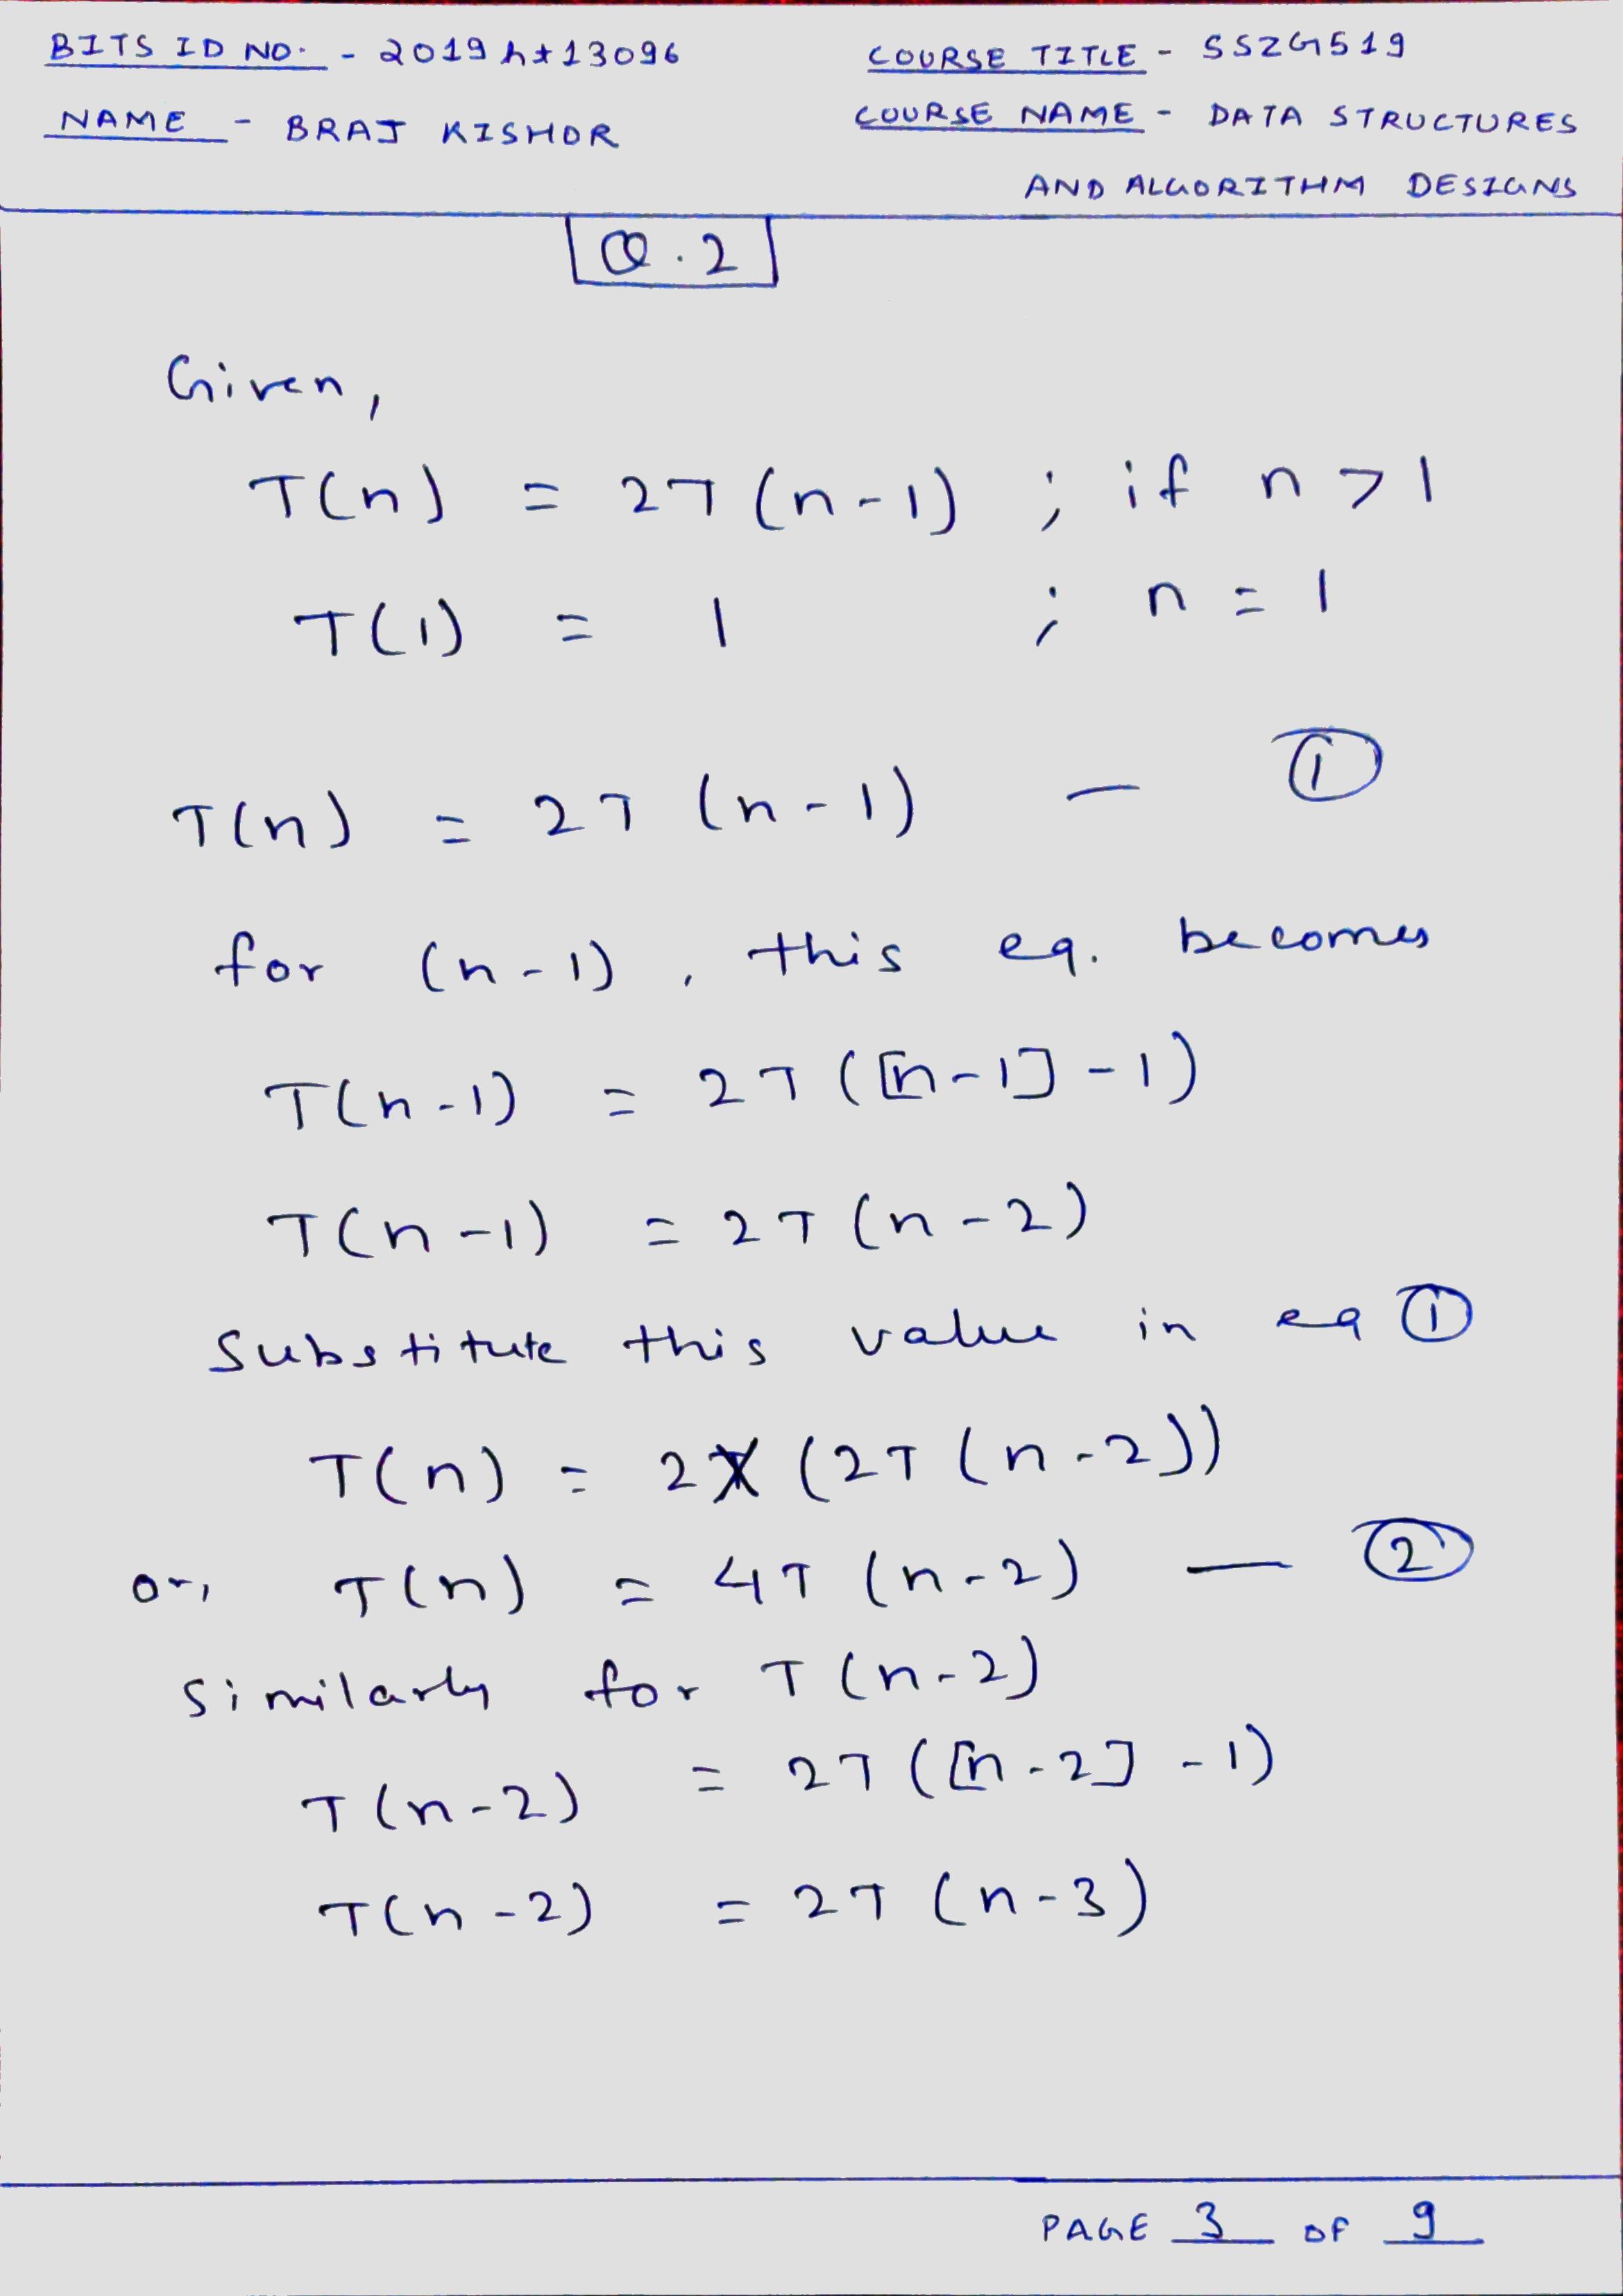 BITS ID NO. - 2019ht13096
COURSE TITLE - SSZG519
NAME - BRAJ KISHOR
COURSE NAME - DATA STRUCTURES
AND ALGORITHM DESIGNS
Q.2
Given,
T(n) = 2T(n-1) ; if n>1
T(1) = 1 ; n=1
T(n) = 2T(n-1) — ①
for (n-1), this eq. becomes
T(n-1) = 2T([n-1]-1)
T(n-1) = 2T(n-2)
Substitute this value in eq ①
T(n) = 2X(2T(n-2))
or, T(n) = 4T(n-2) — ②
Similarly for T(n-2)
T(n-2) = 2T([n-2]-1)
T(n-2) = 2T(n-3)
PAGE 3 OF 9